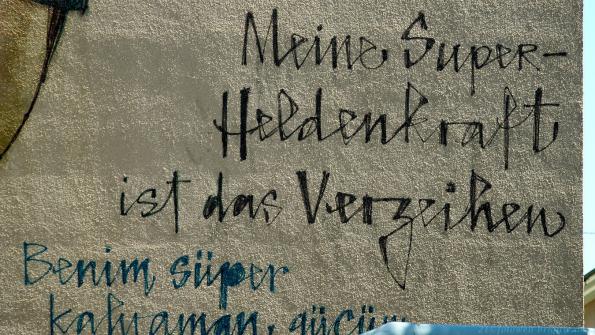 Meine Super-
Heldenkraft
ist das Verzeihen
Benim süper
kahraman, gücüm